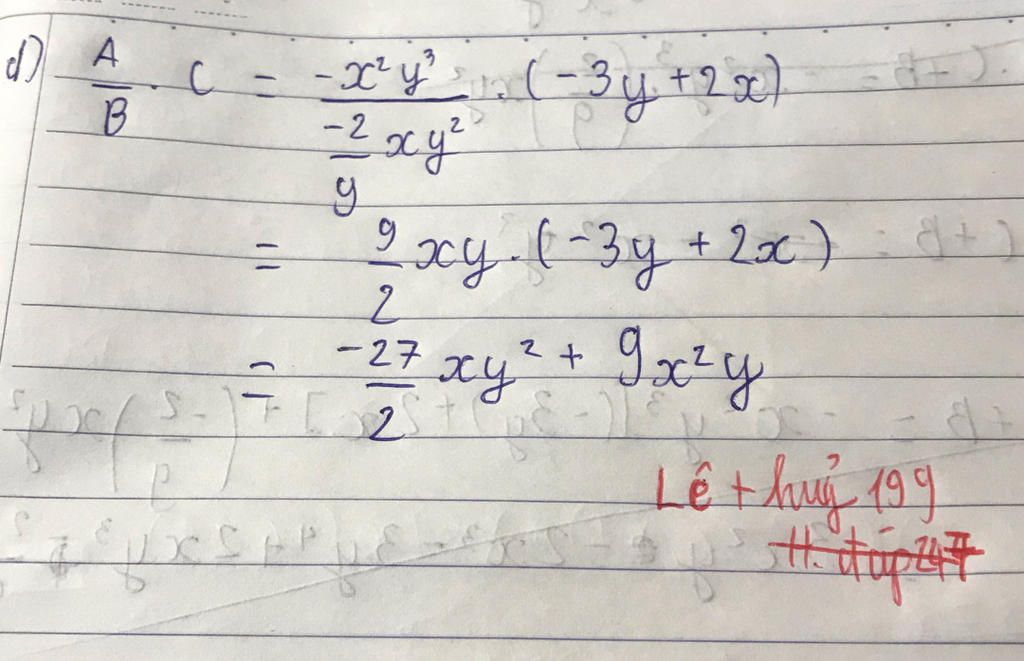 d) A/B . C = -x²y³ / (-2/9 xy²) . (-3y + 2x)
= 9/2 xy . (-3y + 2x)
= -27/2 xy² + 9x²y
Lê thuỷ 199
H. đáp 247